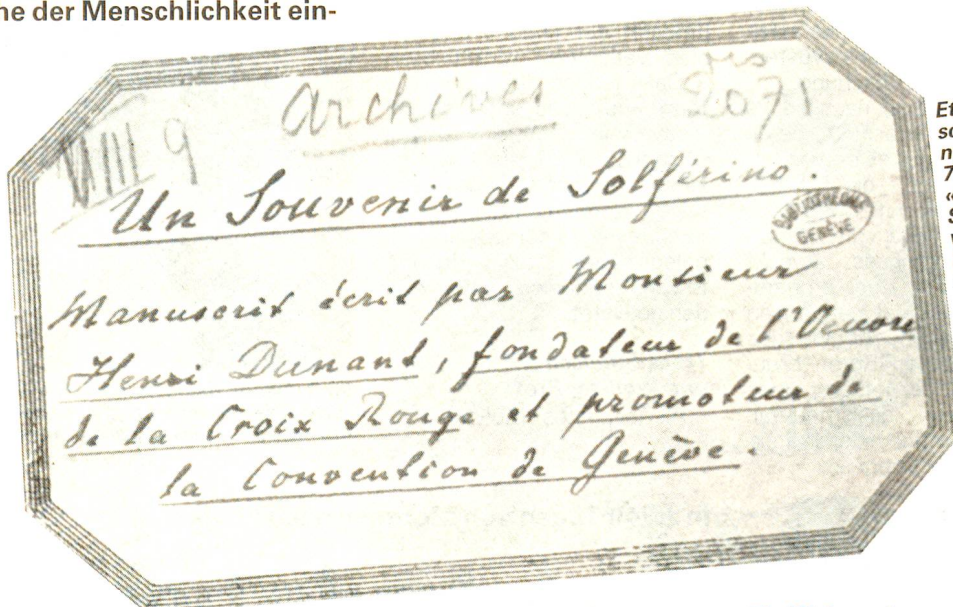 ne der Menschlichkeit ein-
Archives
2071
VIII 9
Un Souvenir de Solférino.
BIBLIOTHEQUE
GENÈVE
Manuscrit écrit par Monsieur
Henri Dunant, fondateur de l'Oeuvre
de la Croix Rouge et promoteur de
la Convention de Genève.
Et
n
7
«
S